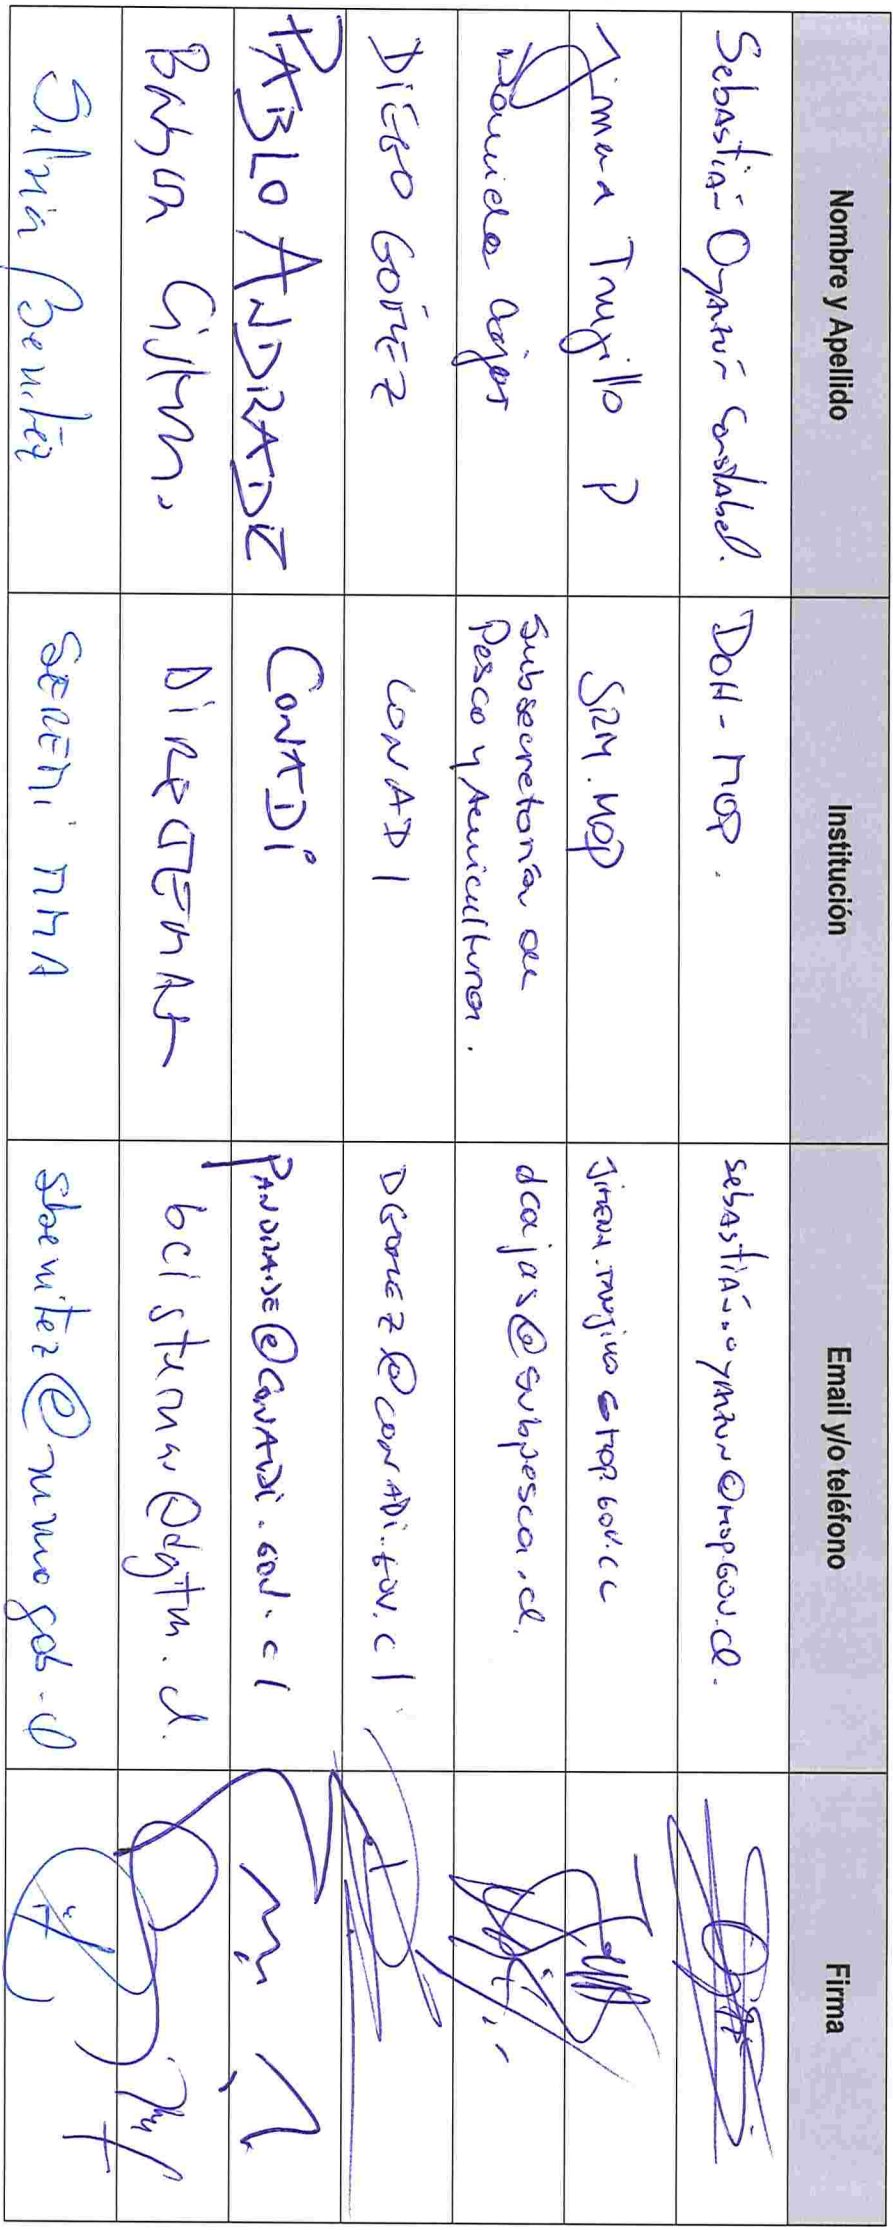 Nombre y Apellido Institución Email y/o teléfono Firma
Sebastián Oyarzún Constabel. DOH-MOP. sebastián.oyarzun@mop.gov.cl.
Jimena Trujillo P SRM.MOP Jimena.Trujillo@mop.gov.cl
Daniela Cajas Subsecretaría de
Pesca y Acuicultura. dcajas@subpesca.cl.
DIEGO GÓMEZ CONADI DGOMEZ@CONADi.GOV.cl
PABLO ANDRADE CONADi PANDRADE@CONADi.GOV.cl
Cisterna. DIRECTEMAR bcisterna@dgtm.cl.
Silvia Benítez SEREMI MMA sbenitez@mma.gob.cl